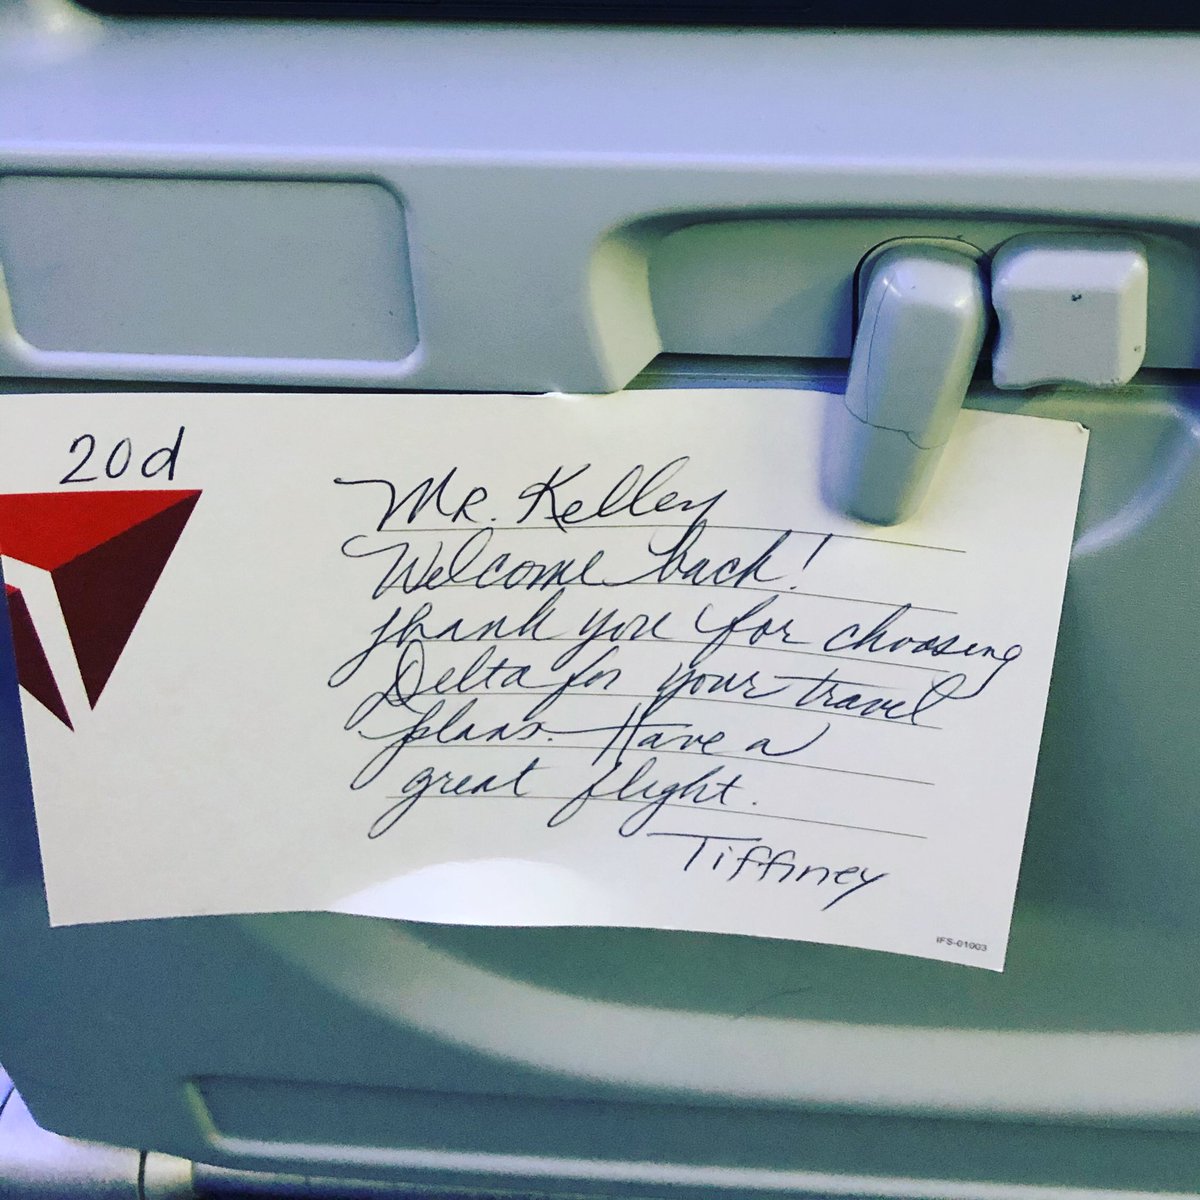 20d
Mr. Kelley
Welcome back!
Thank you for choosing
Delta for your travel
plans. Have a
great flight.
Tiffiney
IFS-01003